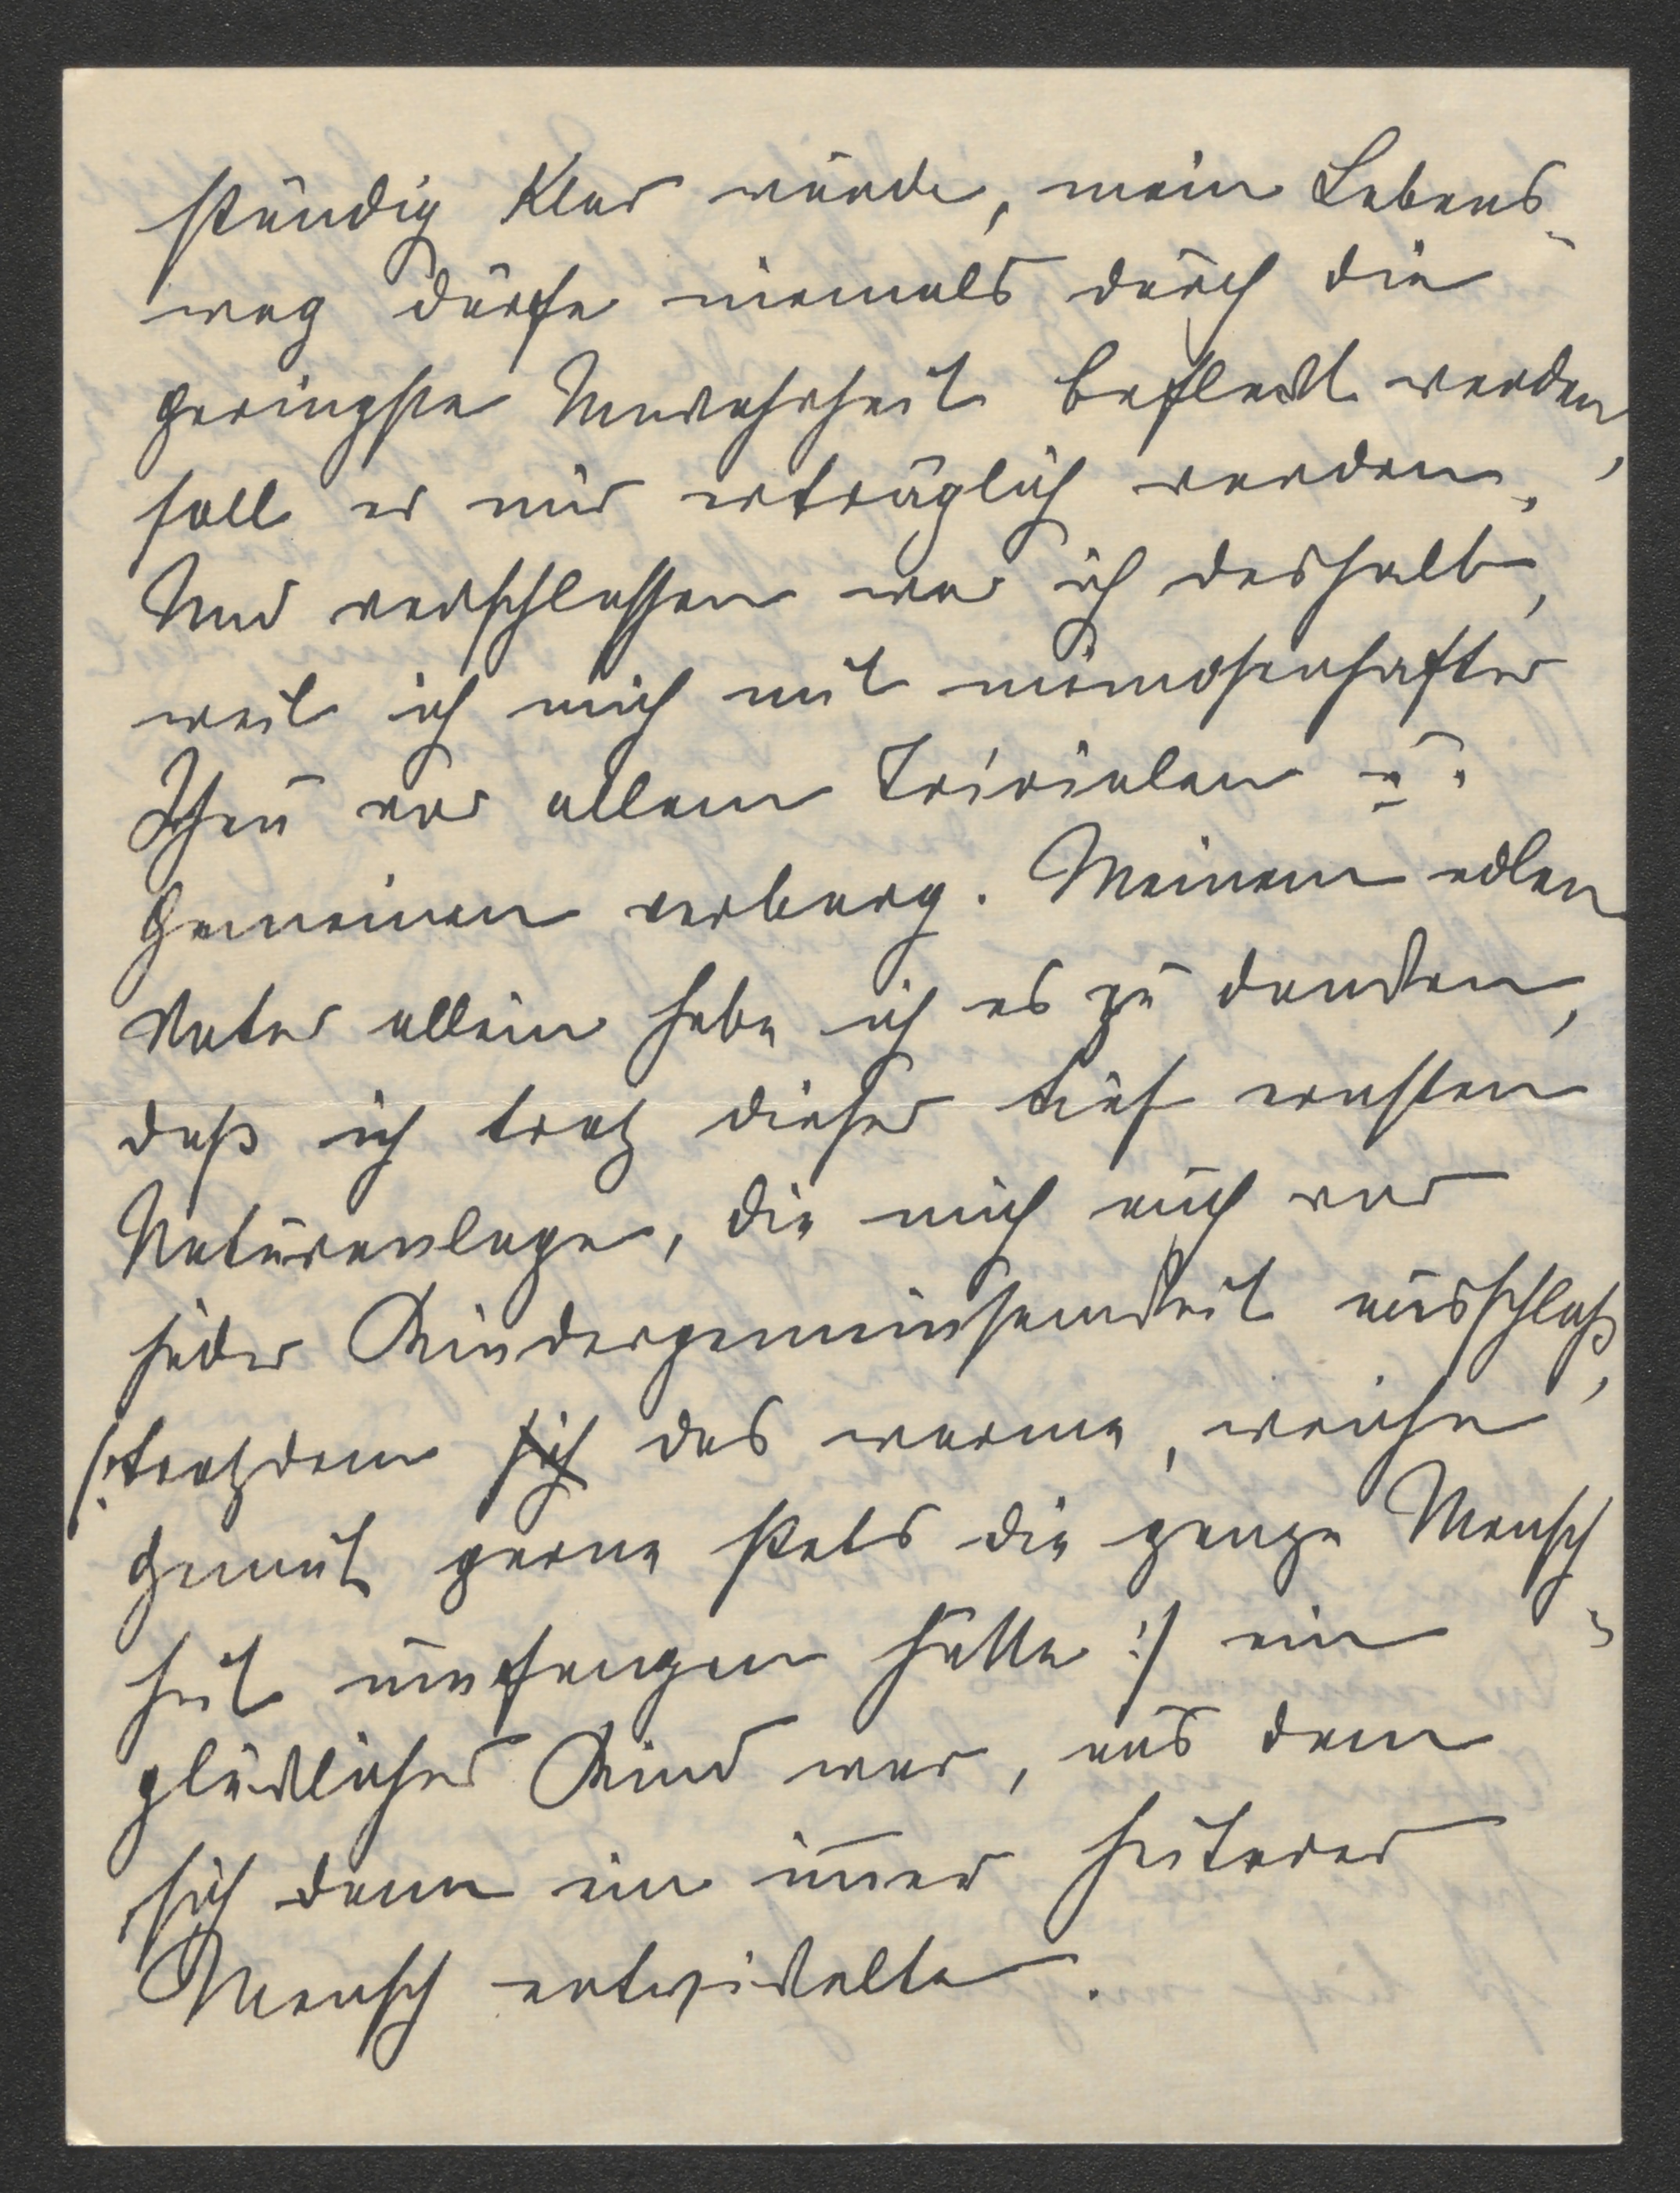 ständig klar wurde, mein Lebens-
weg dürfe niemals durch die
geringste Unwahrheit befleckt werden,
soll er mir erträglich werden.
Und verschlossen war ich deshalb,
weil ich mich mit mimosenhafter
Scheu vor allem Trivialen u.
Gemeinen verbarg. Meinem edlen
Vater allein habe ich es zu danken,
daß ich trotz dieser tief ernsten
Naturanlage, die mich auch von
jeder Kindergemeinsamkeit ausschloß,
/: trotzdem sich das warme, weiche
Gemüt gerne stets die ganze Mensch-
heit umfangen hätte :/ ein
glückliches Kind war, aus dem
sich dann ein im̅er heiterer
Mensch entwickelte.